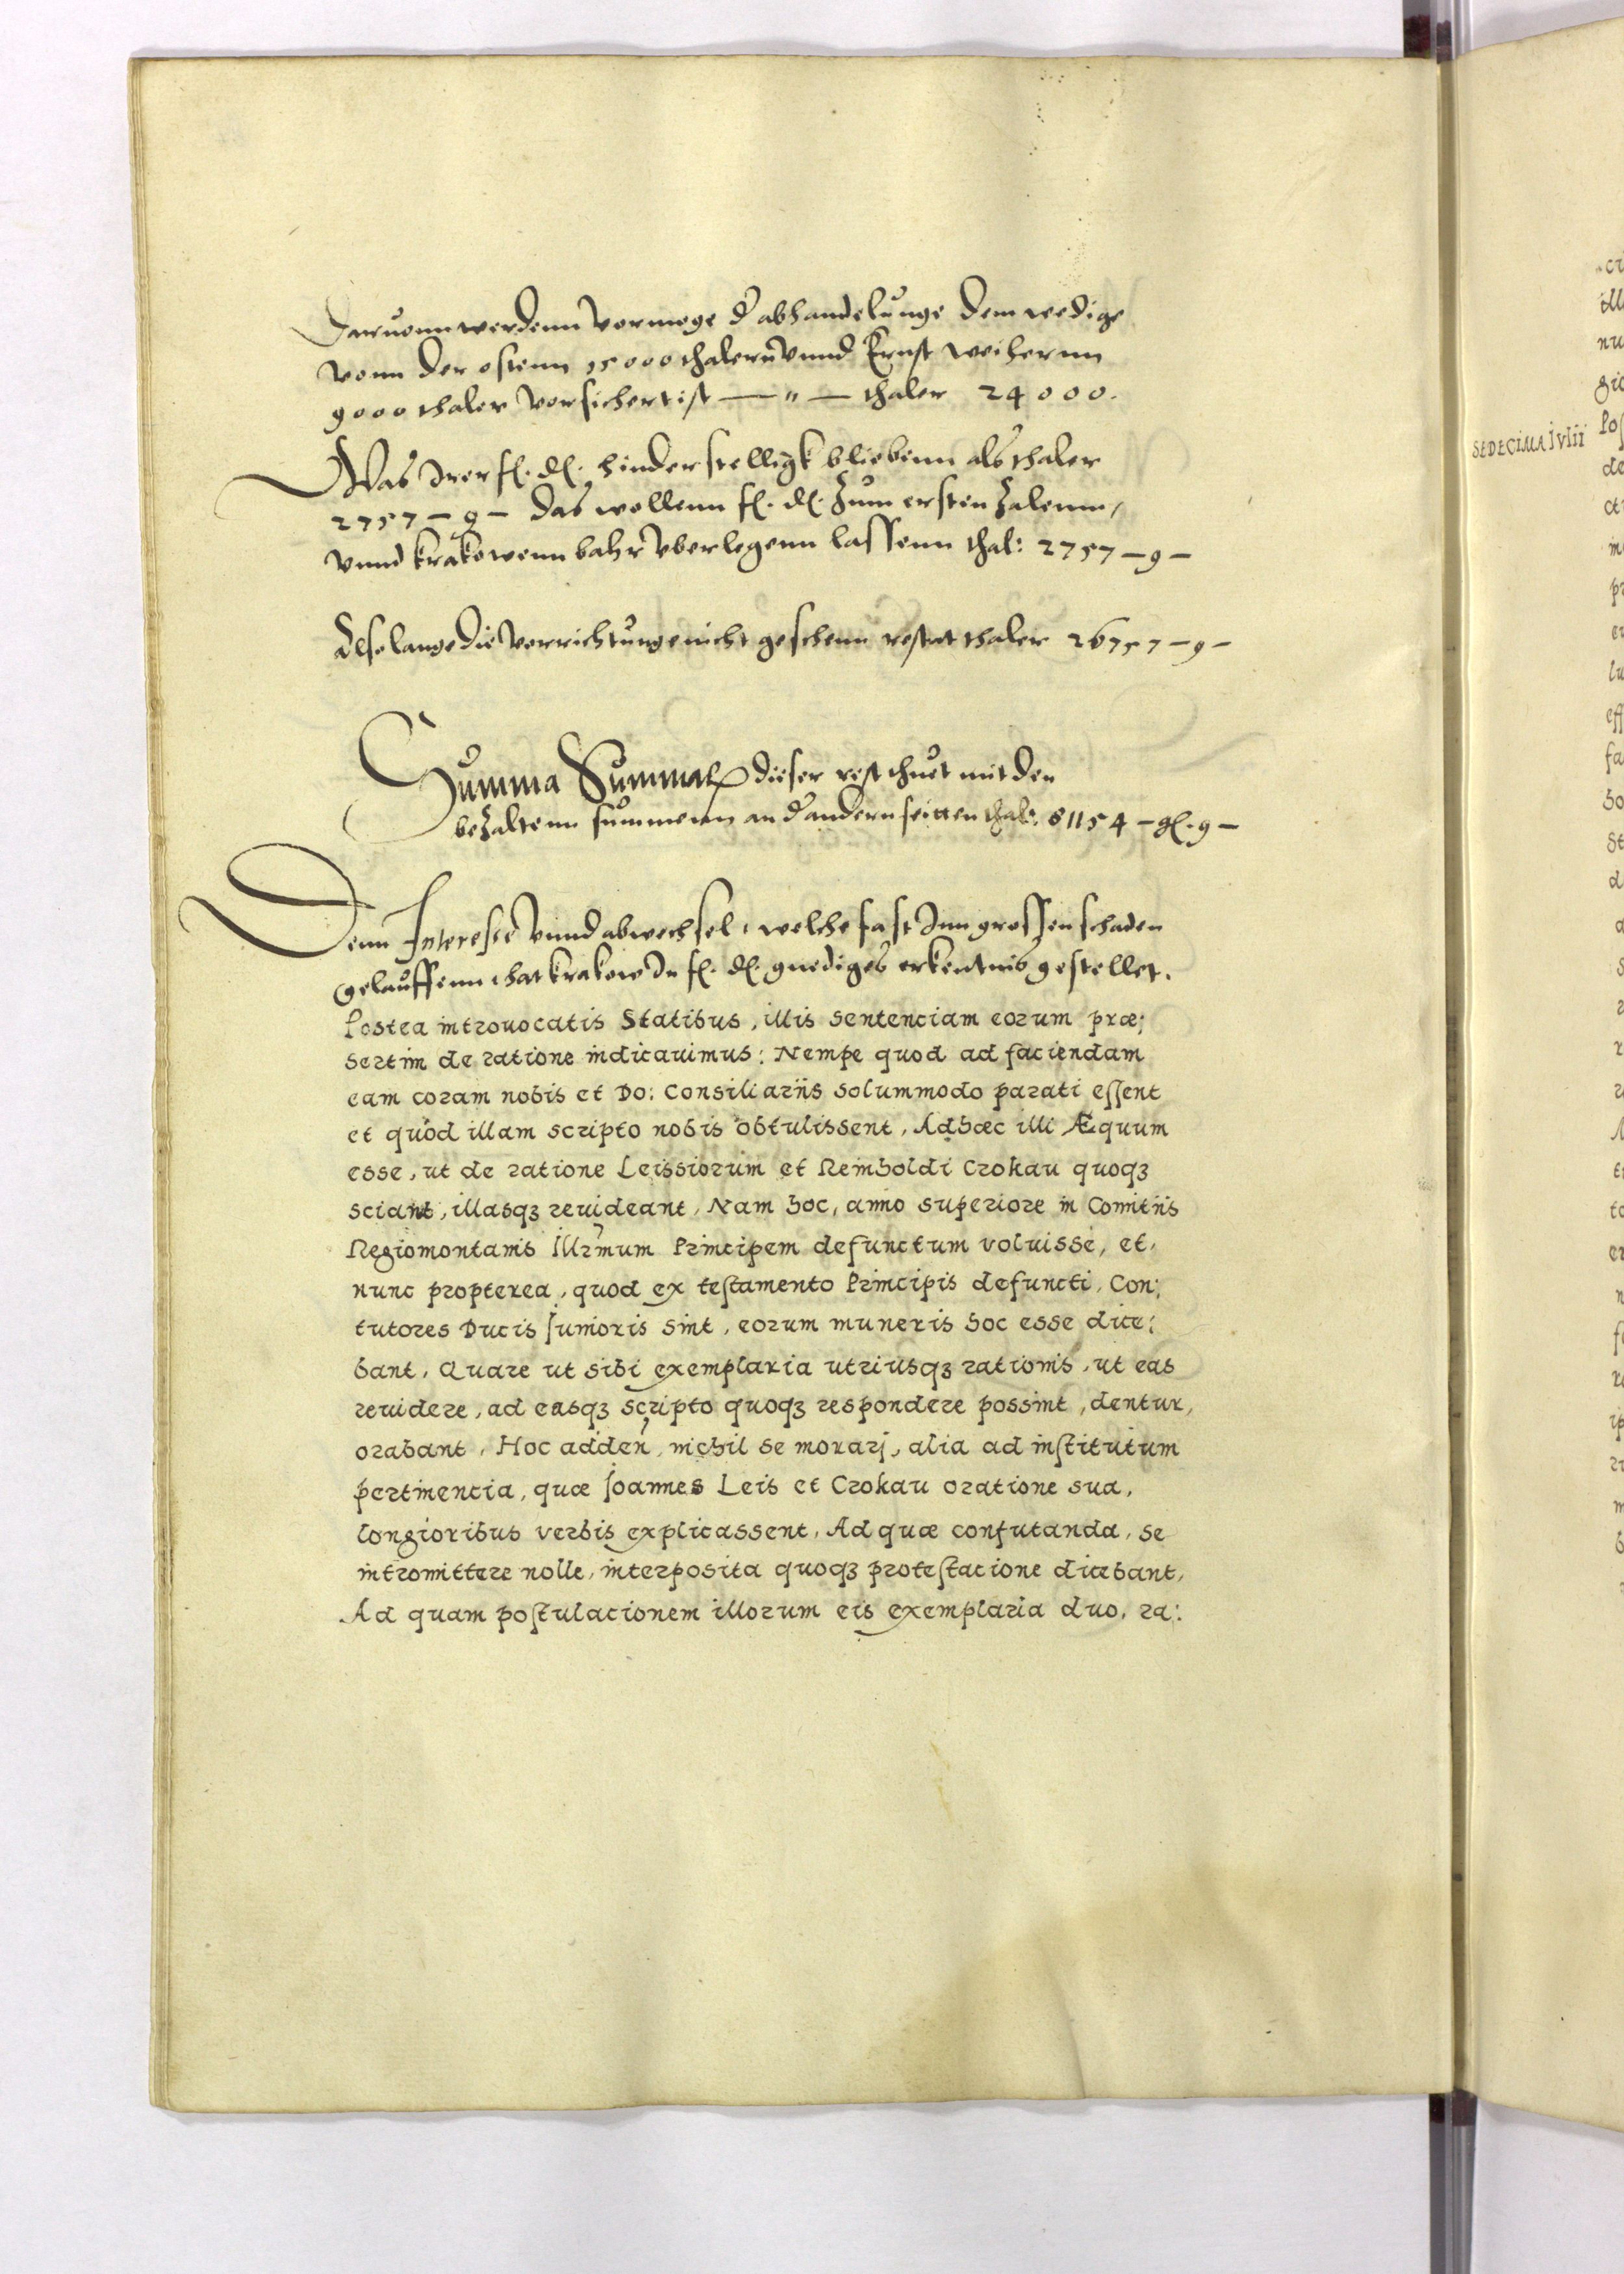 Daruonn werdenn vormoge d' abhandelunge dem wedige
vonn der ostenn 15000 thalern vnnd Ernst weihernn
9000 thaler vorsichert ist — " — thaler 24000.
Was Irer fl. dl. hinderstelligk bliebenn als thaler
2757 – 9 – das wollenn fl. dl. zum ersten zalenn,
vnnd krakowenn bahr vberlegenn lassenn thal: 2757 – 9 –
Also lange die vorrichtunge nicht geschenn restat thaler 26757 – 9 –
Summa Summar dieser rest thuet mit den
bezaltenn summenn an d' andern seitten thal: 81154 – gl. 9 –
Denn Interesse vnnd abwechsel, welche fast Inn grossen schaden
gelauffenn, hat krakow In fl. dl. gnediges erkentnis gestellet.
Postea introuocatis Statibus, illis sentenciam eorum præ;
sertim de ratione indicauimus: Nempe quod ad faciendam
eam coram nobis et Do: Consiliariis solummodo parati essent
et quòd illam scripto nobis obtulissent, Adhæc illi Æquum
esse, ut de ratione Leissiorum et Reinholdi Crokau quoqȝ
sciant, illasqȝ reuideant, Nam hoc, anno superiore in Comitiis
Regiomontanis Illrmum Principem defunctum voluisse, et,
nunc propterea, quod ex testamento Principis defuncti, Con;
tutores Ducis Junioris sint, eorum muneris hoc esse dice;
bant, Quare ut sibi exemplaria utriusqȝ rationis, ut eas
reuidere, ad easqȝ scripto quoqȝ respondere possint, dentur,
orabant, Hoc adden, nichil se morarj, alia ad institutum
pertinencia, quæ Joannes Leis et Crokau oratione sua,
longioribus verbis explicassent, Ad quæ confutanda, se
intromittere nolle, interposita quoqȝ protestacione dicebant,
Ad quam postulacionem illorum eis exemplaria duo, ra:
SEDECIMA IVLII